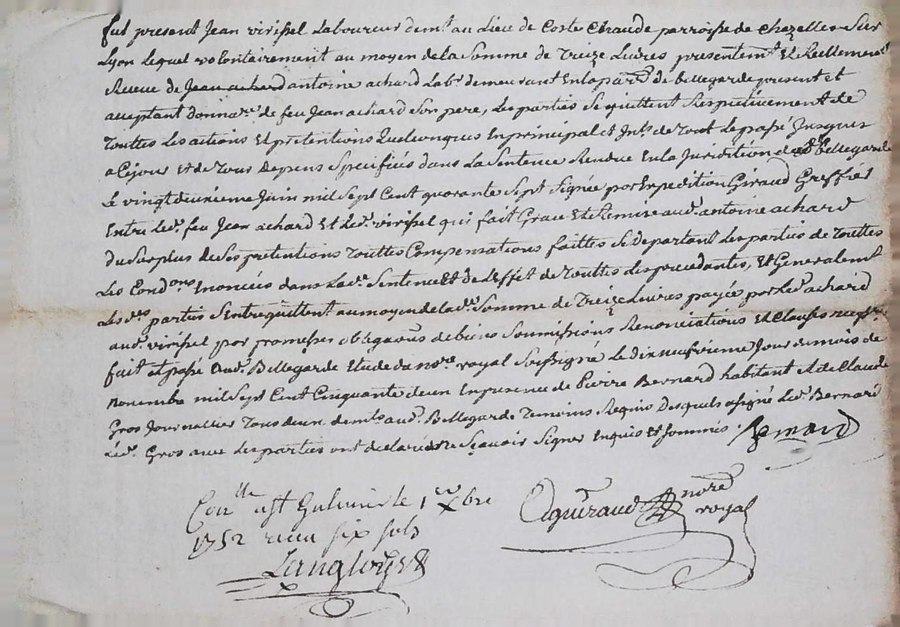 fut present Jean virissel Laboureur demt au Lieu de Coste Chaude parroisse de Chazelles Sur
Lyon Lequel volontairement au moyen de la Somme de Treize Livres presentemt et Reellement
Receue de Jean achard antoine achard Labr demeurant en la parse de Bellegarde present et
acceptant donnare de feu Jean achard Son pere, Les parties Se quittent Respectivement de
Touttes Les actions Et pretentions Quelconques En principal et Intts de Tout Le passé Jusques
a Ce jour Et de Tous Depens Specifiés dans La Sentence Rendue En la Juridition de Bellegarde
Le vingt deuxième Juin mil Sept Cent quarante Sept Signée par Expedition Giraud Greffier
Entre Led. feu Jean achard Et Led. virissel qui fait Grace Et Remise aud. antoine achard
Du Surplus de Ses pretentions Touttes Compensations faittes Se Departant Les parties de Touttes
Les Condons Enoncées dans Lade Sentence Et de L'effet de Touttes Les precedantes, Et Generalemt
Les des parties S'entrequittent au moyen de lade Somme de Treize Livres payée par Led. achard
aud. virissel par promesses obligaons de biens Soumissions Renonciations Et Clauses
fait et passé aud. Bellegarde Etude du nore royal Soussigné Le dix neufvieme Jour du mois de
novembre mil Sept Cent Cinquante deux En presence de Pierre Bernard habitant Et de Claude
Gros Journallier Tous deux demts aud. Bellegarde Temoins Requis Desquels a signé Led. Bernard
Led. Gros avec Les parties ont declaré ne Sçavoir Signer Enquis Et Sommés.
Conllé a St Galmier le 1er Xbre
1752 recu six sols
Langloys
nore
royal